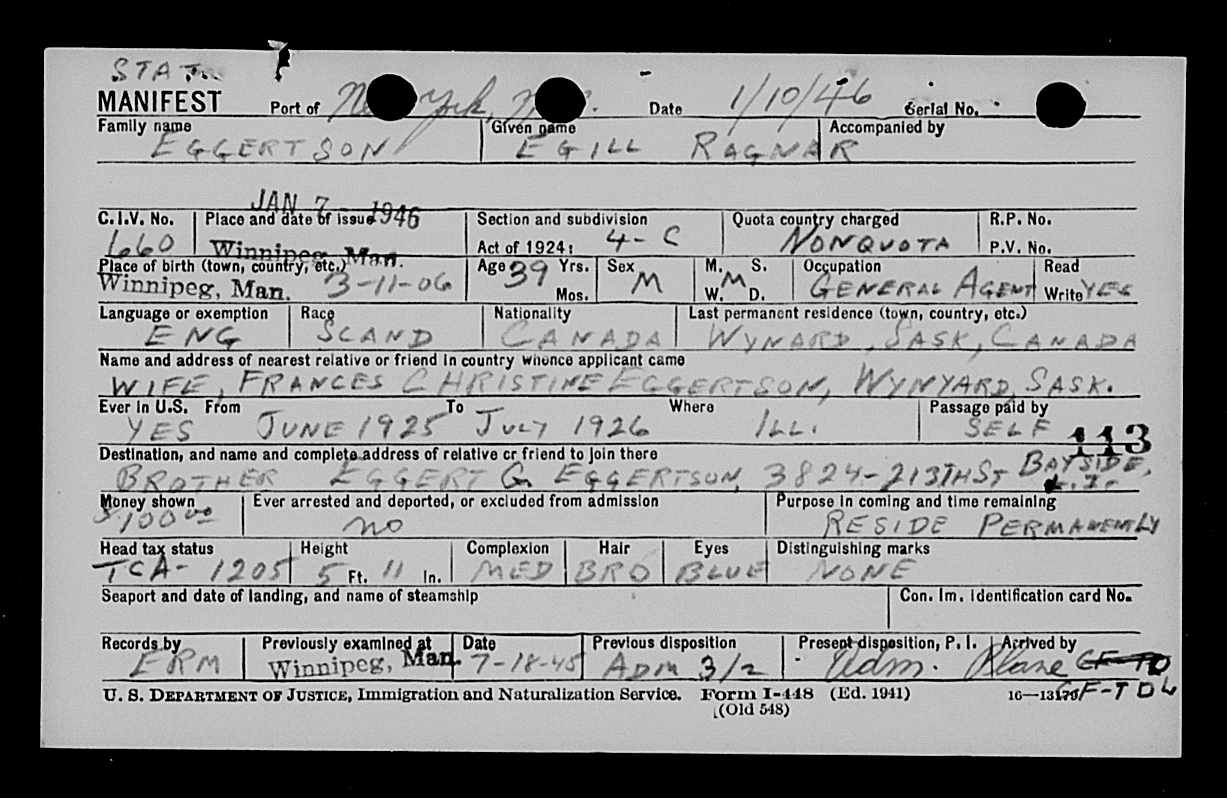 STAT
MANIFEST Port of New York, N.Y. Date 1/10/46 Serial No.
Family name Given name Accompanied by
EGGERTSON EGILL RAGNAR
JAN 7 - 1946
C.I.V. No. Place and date of issue Section and subdivision Quota country charged R.P. No.
660 Winnipeg, Man. Act of 1924: 4-C NONQUOTA P.V. No.
Place of birth (town, country, etc.) Age 39 Yrs. Sex M. S. Occupation Read
Winnipeg, Man. 3-11-06 Mos. M W. M D. GENERAL AGENT Write YES
Language or exemption Race Nationality Last permanent residence (town, country, etc.)
ENG SCAND CANADA WYNARD, SASK, CANADA
Name and address of nearest relative or friend in country whence applicant came
WIFE, FRANCES CHRISTINE EGGERTSON, WYNYARD, SASK.
Ever in U.S. From To Where Passage paid by
YES JUNE 1925 JULY 1926 ILL. SELF 113
Destination, and name and complete address of relative or friend to join there
BROTHER EGGERT G. EGGERTSON, 3824-213TH ST BAYSIDE, L.I.
Money shown Ever arrested and deported, or excluded from admission Purpose in coming and time remaining
$100.00 NO RESIDE PERMANENTLY
Head tax status Height Complexion Hair Eyes Distinguishing marks
TCA- 1205 5 Ft. 11 In. MED BRO BLUE NONE
Seaport and date of landing, and name of steamship Con. Im. Identification card No.
Records by Previously examined at Date Previous disposition Present disposition, P. I. Arrived by
ERM Winnipeg, Man. 7-18-45 ADM 3/2 Adm. Plane CF-TD
U. S. DEPARTMENT OF JUSTICE, Immigration and Naturalization Service. Form I-448 (Ed. 1941) 16—13176 CF-TDW
(Old 548)